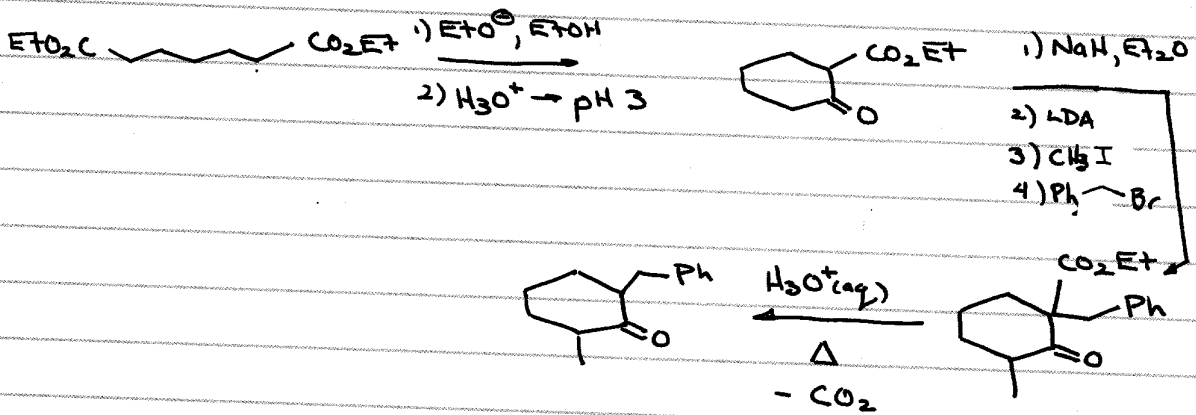 EtO₂C CO₂Et 1) EtO⊖, EtOH
2) H₃O⁺ → pH 3
CO₂Et
O
1) NaH, Et₂O
2) LDA
3) CH₃I
4) Ph Br
CO₂Et
Ph
O
H₃O⁺(aq)
Δ
- CO₂
Ph
O